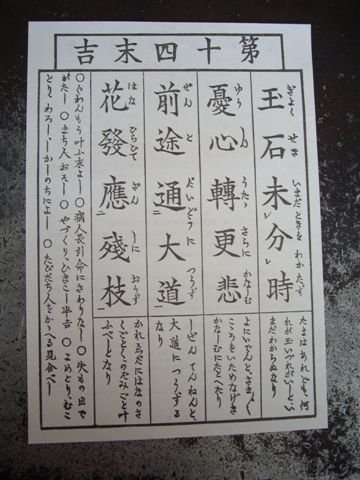 第十四末吉
玉石未分時
ぎよく せき いまだときを わかたず
たまはあれども、何
れが玉いづれがいしとい
まだわからぬなり
憂心轉更悲
ゆう しん うたゝ さらに かなしむ
よにいでんと、さま〲
こころをいためなげき
かなしむにたとへたり
前途通大道
ぜん と だいどうに つうず
しぜんてんねんと、
大道につうずる
なり
花發應殘枝
はな ひらひて ざん しに おうず
かれえだにはなのさ
くごとくのぞみごと叶
ふべしとなり
○ぐわんもう叶ふ末よし○病人長引命にさわりなし○失もの出で
がたし○まち人おそし○やづくり、ひきこし半吉○よめとり、むこ
とり、わろし、しかしのちによし○たびだち人をかゝへる見合べし